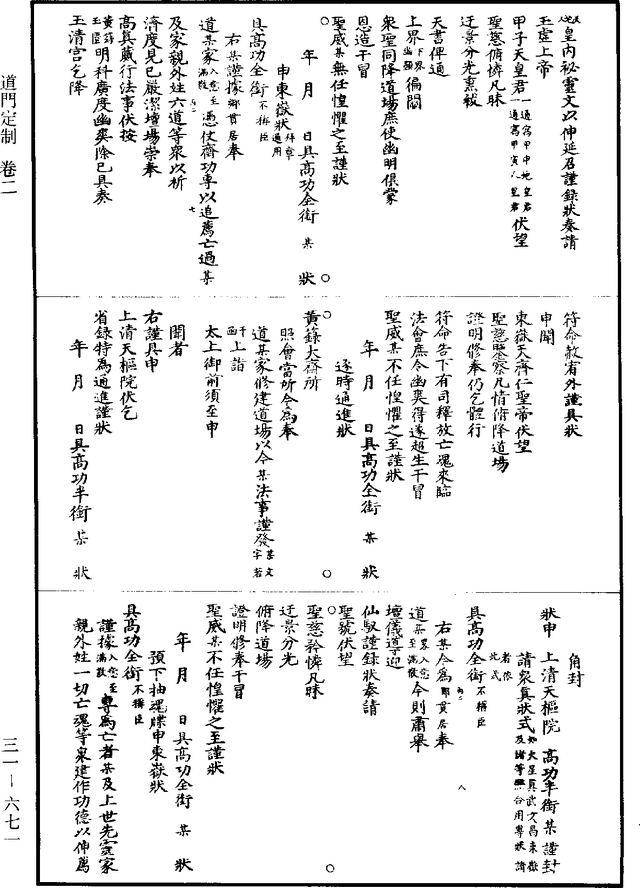 皇内秘靈文以伸延召謹錄狀奏請
玉虛上帝
甲子天皇君一通寫甲申地皇君一通寫甲寅人皇君伏望
聖慈俯憐凡昧
迂景分光熏祓
天書俾通
上界下界幽顯徧聞
衆聖同降道場庶使幽明俱蒙
恩造干冒
聖威某無任惶懼之至謹狀
年 月 日具高功全銜 某 狀
申東嶽狀拜章通用
具高功全銜不稱臣
右某謹據鄉貫居奉
道某家入意至滿散憑仗齋功專以追薦亡過某
及家親外姓六道等衆以祈
濟度見已嚴潔壇場崇奉
高真蕆行法事伏按
黃籙玉匱明科廣度幽爽除已具奏
玉清宫乞降
符命赦宥外謹具狀
申聞
東嶽天齊仁聖帝伏望
聖慈鑒察凡情俯降道場
證明修奉仍乞體行
符命告下有司釋放亡魂來臨
法會庶令幽爽得遂超生干冒
聖威某不任惶懼之至謹狀
年 月 日具高功全銜 某 狀
逐時通進狀
黃籙大齋所
照會當所今為奉
道某家修建道場以今某法事謹發某文字若
干函上詣
太上御前須至申
聞者
右謹具申
上清天樞院伏乞
省錄特為通進謹狀
年 月 日具高功半銜 某 狀
角封
狀申 上清天樞院 高功半銜某謹封
請衆真狀式
者依此式
具高功全銜不稱臣
右某今為鄉貫居奉
道某家入意至滿散今則肅舉
壇儀導迎
仙馭謹錄狀奏請
聖號伏望
聖慈矜憐凡昧
迂景分光
俯降道場
證明修奉干冒
聖威某不任惶懼之至謹狀
年 月 日具高功全銜 某 狀
預下抽魂牒申東嶽狀
具高功全銜不稱臣
謹據入意至滿散專為亡者某及上世先靈家
親外姓一切亡魂等衆建作功德以伸薦
道門定制 卷二
三一—六七一